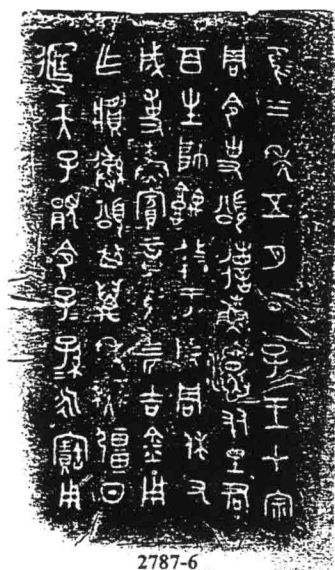 隹三年五月丁子王才宗
周令史頌省蘇友里君
百生帥堣盩于成周休又
成事蘇賓章馬四匹吉金用
乍彝頌其萬年無疆日
天子顯令子子孫孫永寶用
2787-6